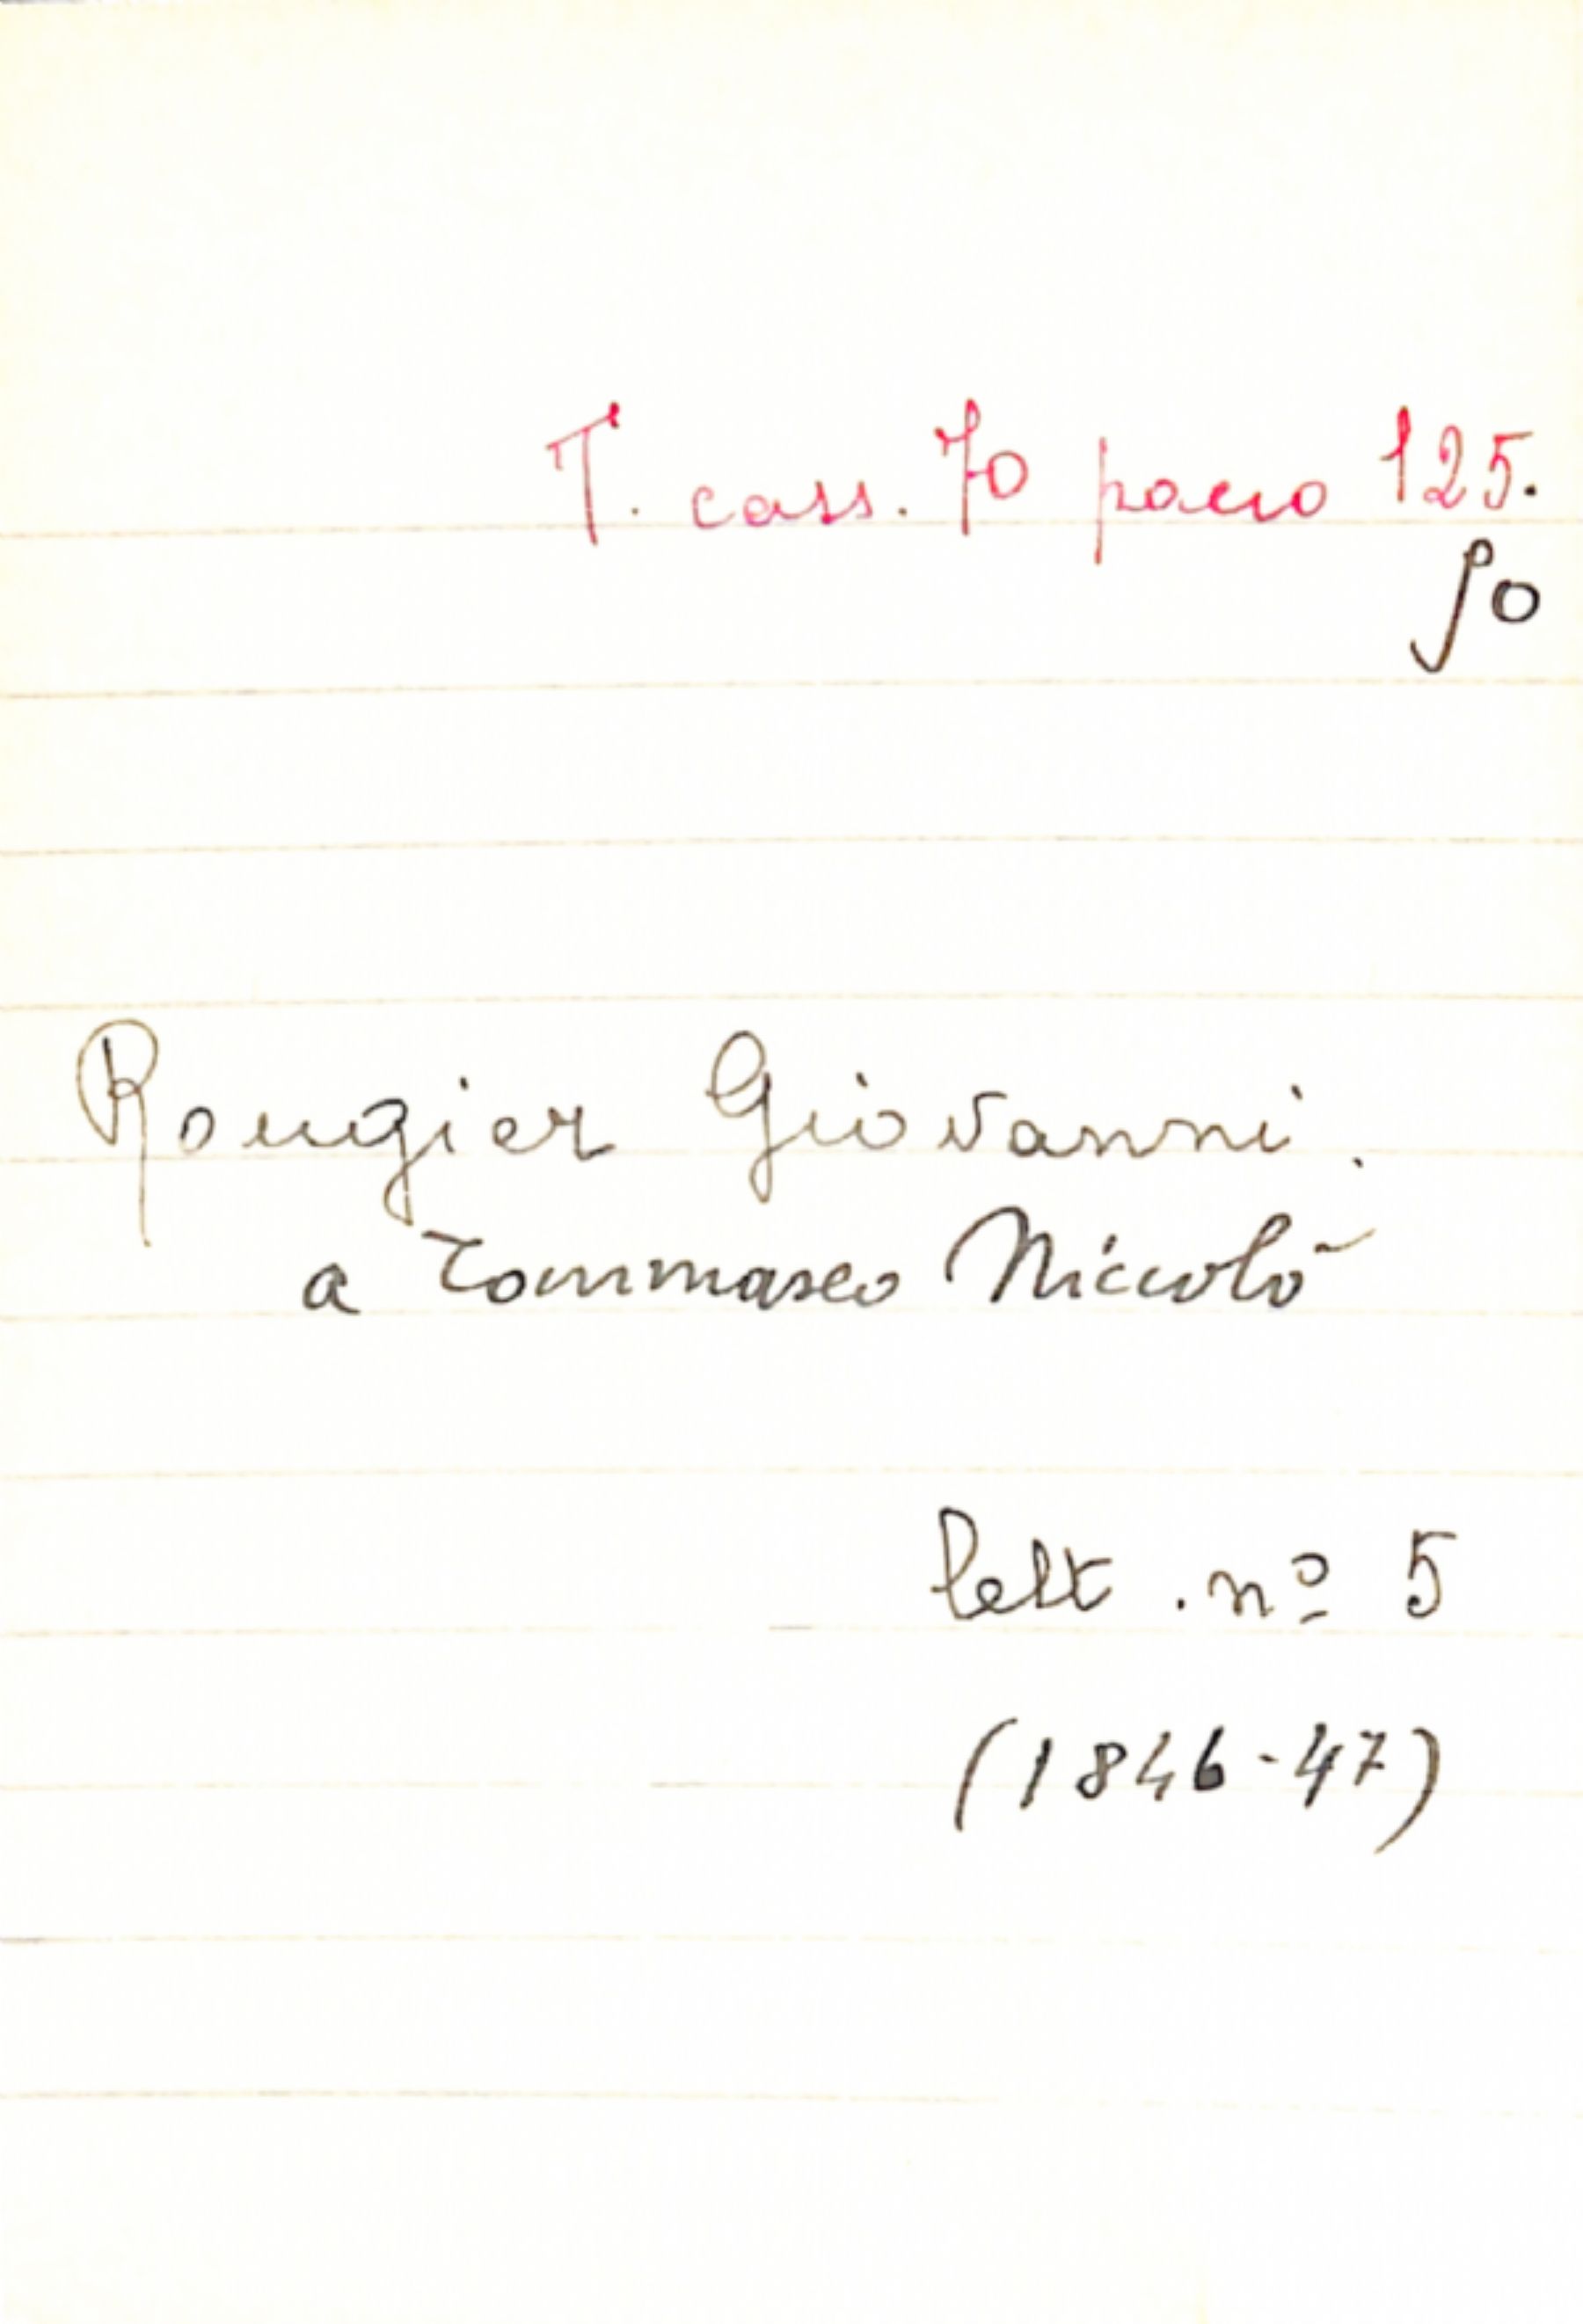 T. cass. 70 pacco 125.
50
Rougier Giovanni.
a Tommaseo Niccolò
lett. nº 5
(1846-47)